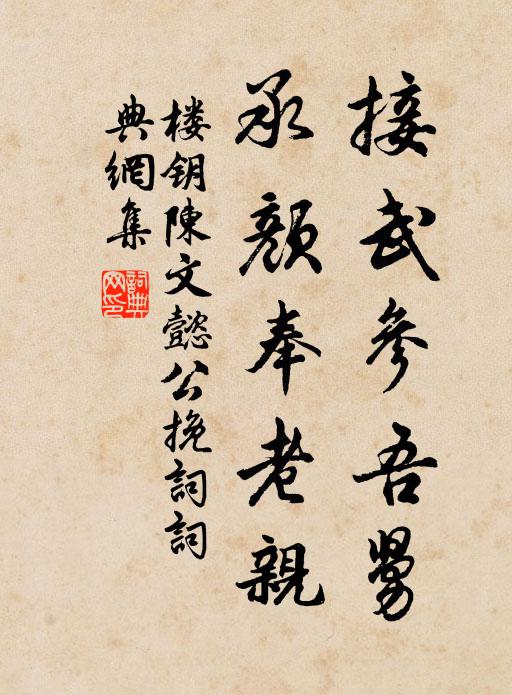 接武参吾舅
承颜奉老親
楼钥陳文懿公挽詞詞
典網集
詞典网印